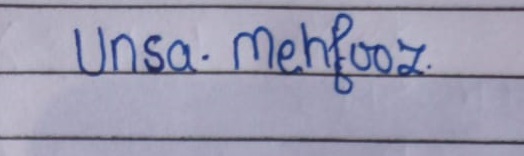 Unsa. Mehfooz.